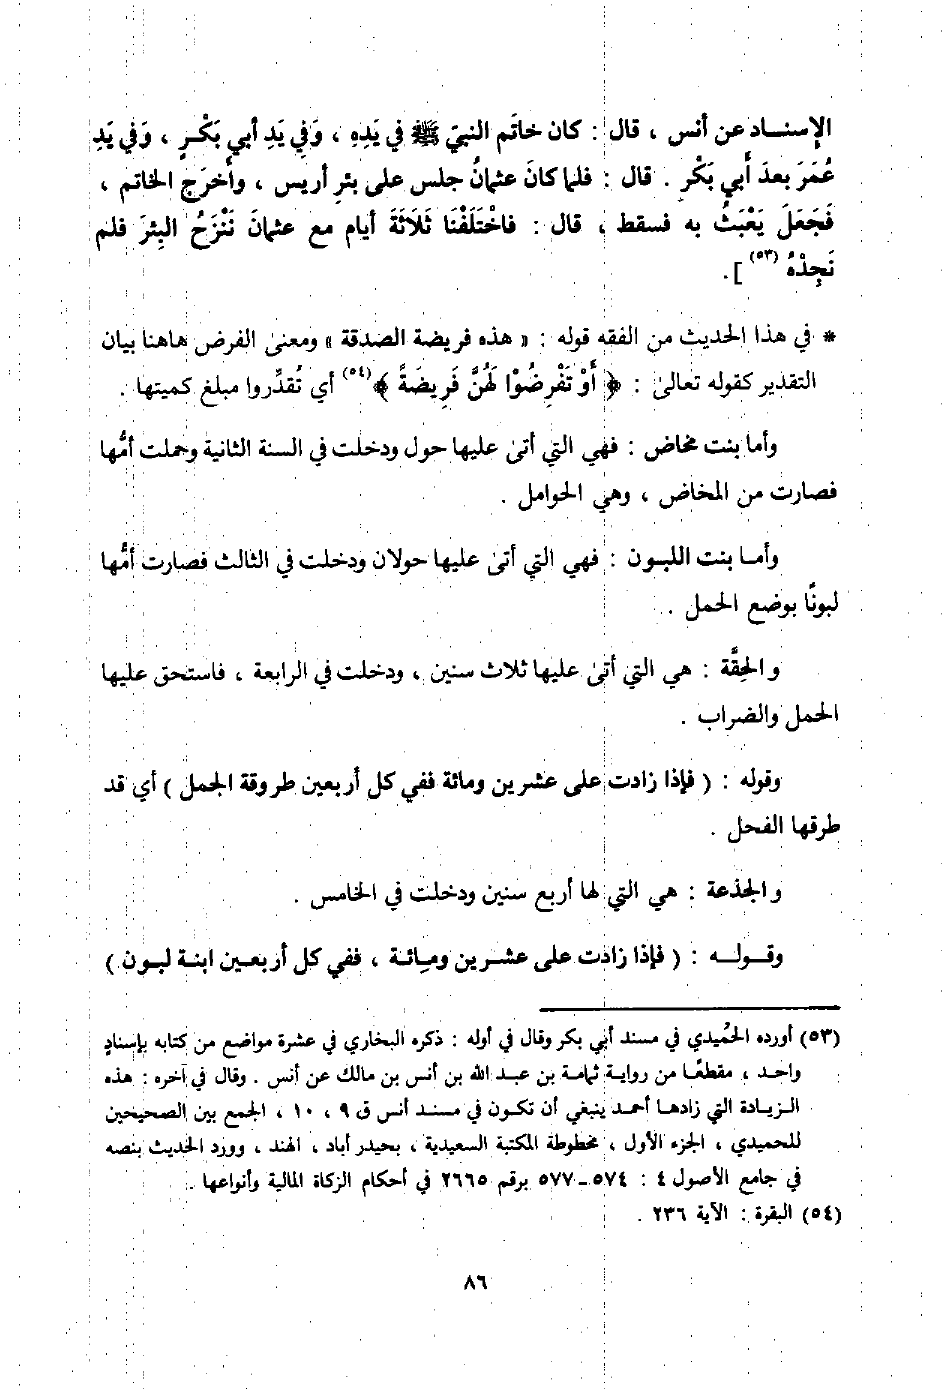 الإسنـاد عن أنس ، قال : كان خاتَم النبيّ ﷺ في يَدِهِ ، وَفِي يَدِ أبي بَكْـرٍ ، وَفي يَدِ
عُمَرَ بعدَ أَبي بَكْرٍ . قال : فلما كانَ عثمانُ جلس على بئرِ أريس ، وأَخرَج الخاتم ،
فَجَعَلَ يَعْبَثُ به فسقط ، قال : فاخْتَلَفْنَا ثَلَاثَةَ أيام مع عثمانَ نَنْزَحُ البِئرَ فلم
نَجِدْهُ (٥٣) ] .
* في هذا الحديث من الفقه قوله : « هذه فريضة الصدقة » ومعنى الفرض هاهنا بيان
التقدير كقوله تعالىٰ : ﴿ أَوْ تَفْرِضُوْا لَهُنَّ فَرِيضَةً ﴾(٥٤) أي تُقدِّروا مبلغ كميتها .
وأما بنت مخاض : فهي التي أتىٰ عليها حول ودخلت في السنة الثانية وحملت أمُّها
فصارت من المخاض ، وهي الحوامل .
وأمـا بنت اللبـون : فهي التي أتىٰ عليها حولان ودخلت في الثالث فصارت أمُّها
لبونًا بوضع الحمل .
والحِقَّة : هي التي أتىٰ عليها ثلاث سنين ، ودخلت في الرابعة ، فاستحق عليها
الحمل والضراب .
وقوله : ( فإذا زادت على عشرين ومائة ففي كل أربعين طروقة الجمل ) أي قد
طرقها الفحل .
والجذعة : هي التي لها أربع سنين ودخلت في الخامس .
وقـولـه : ( فإذا زادت على عشـرين ومِائـة ، ففي كل أربعـين ابنـة لبـون )
(٥٣) أورده الحُميدي في مسند أبي بكر وقال في أوله : ذكره البخاري في عشرة مواضع من كتابه بإسنادٍ
واحـد ، مقطعًـا من روايـة ثمامـة بن عبـد الله بن أنس بن مالك عن أنس . وقال في آخره : هذه
الـزيـادة التي زادهـا أحمـد ينبغي أن تكـون في مسنـد أنس ق ٩ ، ١٠ ، الجمع بين الصحيحين
للحميدي ، الجزء الأول ، مخطوطة المكتبة السعيدية ، بحيدر أباد ، الهند ، وورد الحديث بنصه
في جامع الأصول ٤ : ٥٧٤ـ٥٧٧ برقم ٢٦٦٥ في أحكام الزكاة المالية وأنواعها .
(٥٤) البقرة : الآية ٢٣٦ .
٨٦